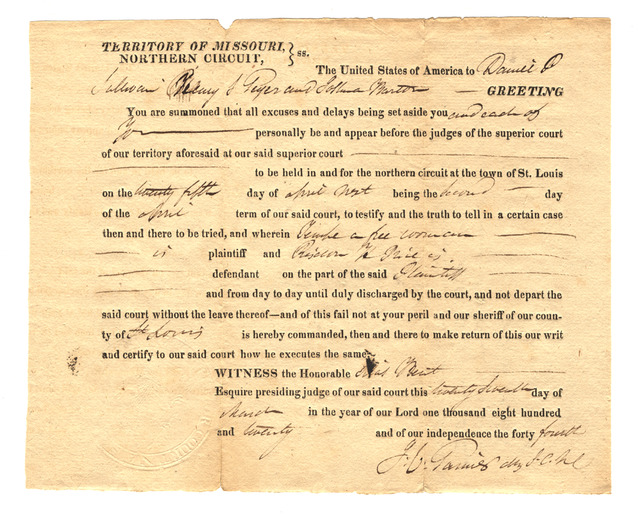 TERRITORY OF MISSOURI,
NORTHERN CIRCUIT, } ss.
The United States of America to Daniel
Sullivan Henry and Joshua
GREETING
You are summoned that all excuses and delays being set aside you and each of
You personally be and appear before the judges of the superior court
of our territory aforesaid at our said superior court
to be held in and for the northern circuit at the town of St. Louis
on the twenty fifth day of april next being the second day
of the april term of our said court, to testify and the truth to tell in a certain case
then and there to be tried, and wherein Tempe a free woman
is plaintiff and Risdon H Price is
defendant on the part of the said Plaintiff
and from day to day until duly discharged by the court, and not depart the
said court without the leave thereof—and of this fail not at your peril and our sheriff of our coun-
ty of St Louis is hereby commanded, then and there to make return of this our writ
and certify to our said court how he executes the same.
WITNESS the Honorable Silas Bent
Esquire presiding judge of our said court this twenty seventh day of
March in the year of our Lord one thousand eight hundred
and twenty and of our independence the forty fourth